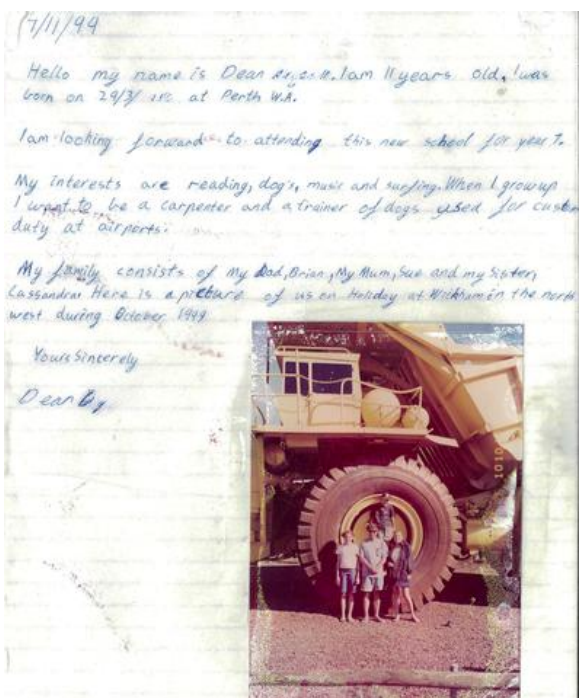 17/11/99
Hello my name is Dean I am 11 years old, I was
born on 29/3/ at Perth W.A.
I am looking forward to attending this new school for year 7.
My interests are reading, dog's, music and surfing. When I grow up
I want to be a carpenter and a trainer of dogs used for custom
duty at airports.
My family consists of my Dad, Brian, My Mum, Sue and my Sister,
Cassandra. Here is a picture of us on Holiday at Wickham in the north
west during October 1999
Yours Sincerely
Dean